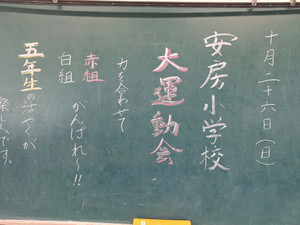 十月二十六日(日)
安房小学校
大運動会
力を合わせて
赤組
白組
がんばれ〜!!
五年生の活やくが
楽しみです。